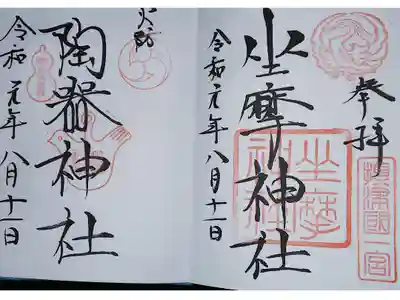 奉拝
摂津国一宮
坐摩神社
坐摩神社
令和元年八月十一日
火防
陶器神社
令和元年八月十一日